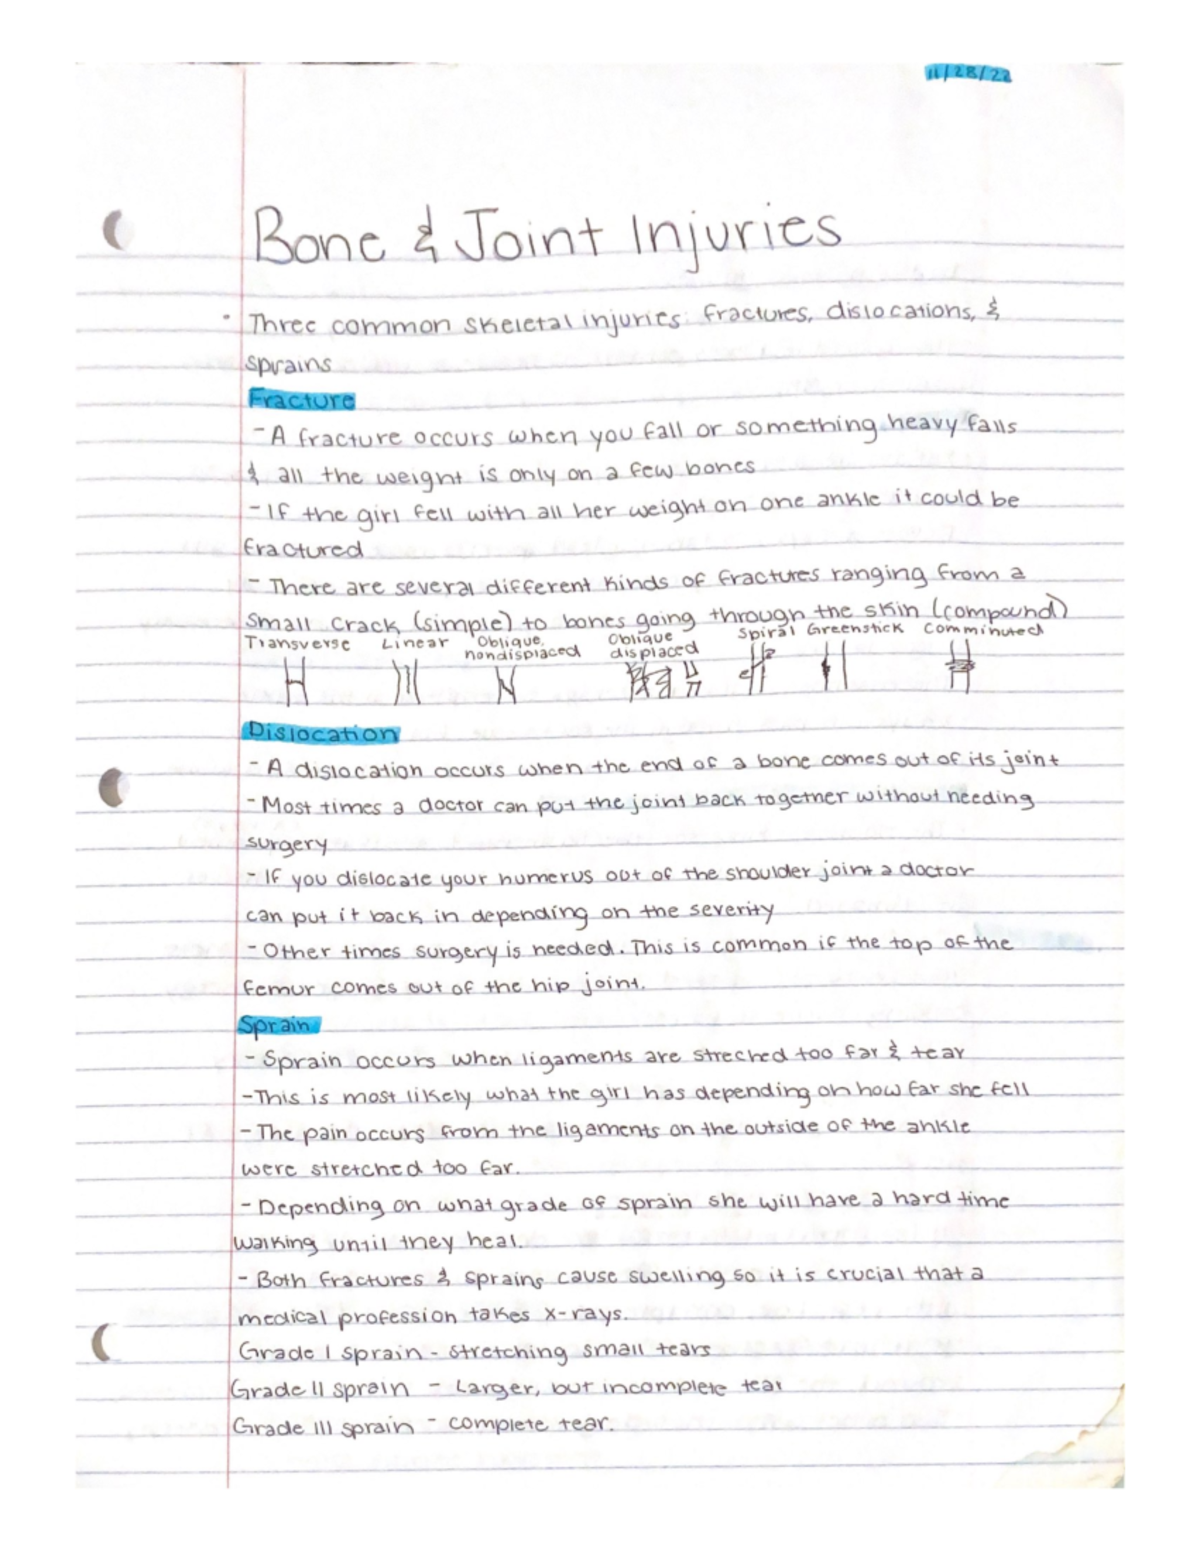 11/28/22
Bone & Joint Injuries
· Three common skeletal injuries: fractures, dislocations, &
sprains
Fracture
- A fracture occurs when you fall or something heavy falls
& all the weight is only on a few bones
- If the girl fell with all her weight on one ankle it could be
fractured
- There are several different kinds of fractures ranging from a
small crack (simple) to bones going through the skin (compound)
Transverse Linear Oblique, nondisplaced Oblique displaced Spiral Greenstick Comminuted
Dislocation
- A dislocation occurs when the end of a bone comes out of its joint
- Most times a doctor can put the joint back together without needing
surgery
- If you dislocate your humerus out of the shoulder joint a doctor
can put it back in depending on the severity
- Other times surgery is needed. This is common if the top of the
femur comes out of the hip joint.
Sprain
- Sprain occurs when ligaments are streched too far & tear
- This is most likely what the girl has depending on how far she fell
- The pain occurs from the ligaments on the outside of the ankle
were stretched too far.
- Depending on what grade of sprain she will have a hard time
walking until they heal.
- Both fractures & sprains cause swelling so it is crucial that a
medical profession takes x-rays.
Grade I sprain - stretching small tears
Grade II sprain - Larger, but incomplete tear
Grade III sprain - complete tear.